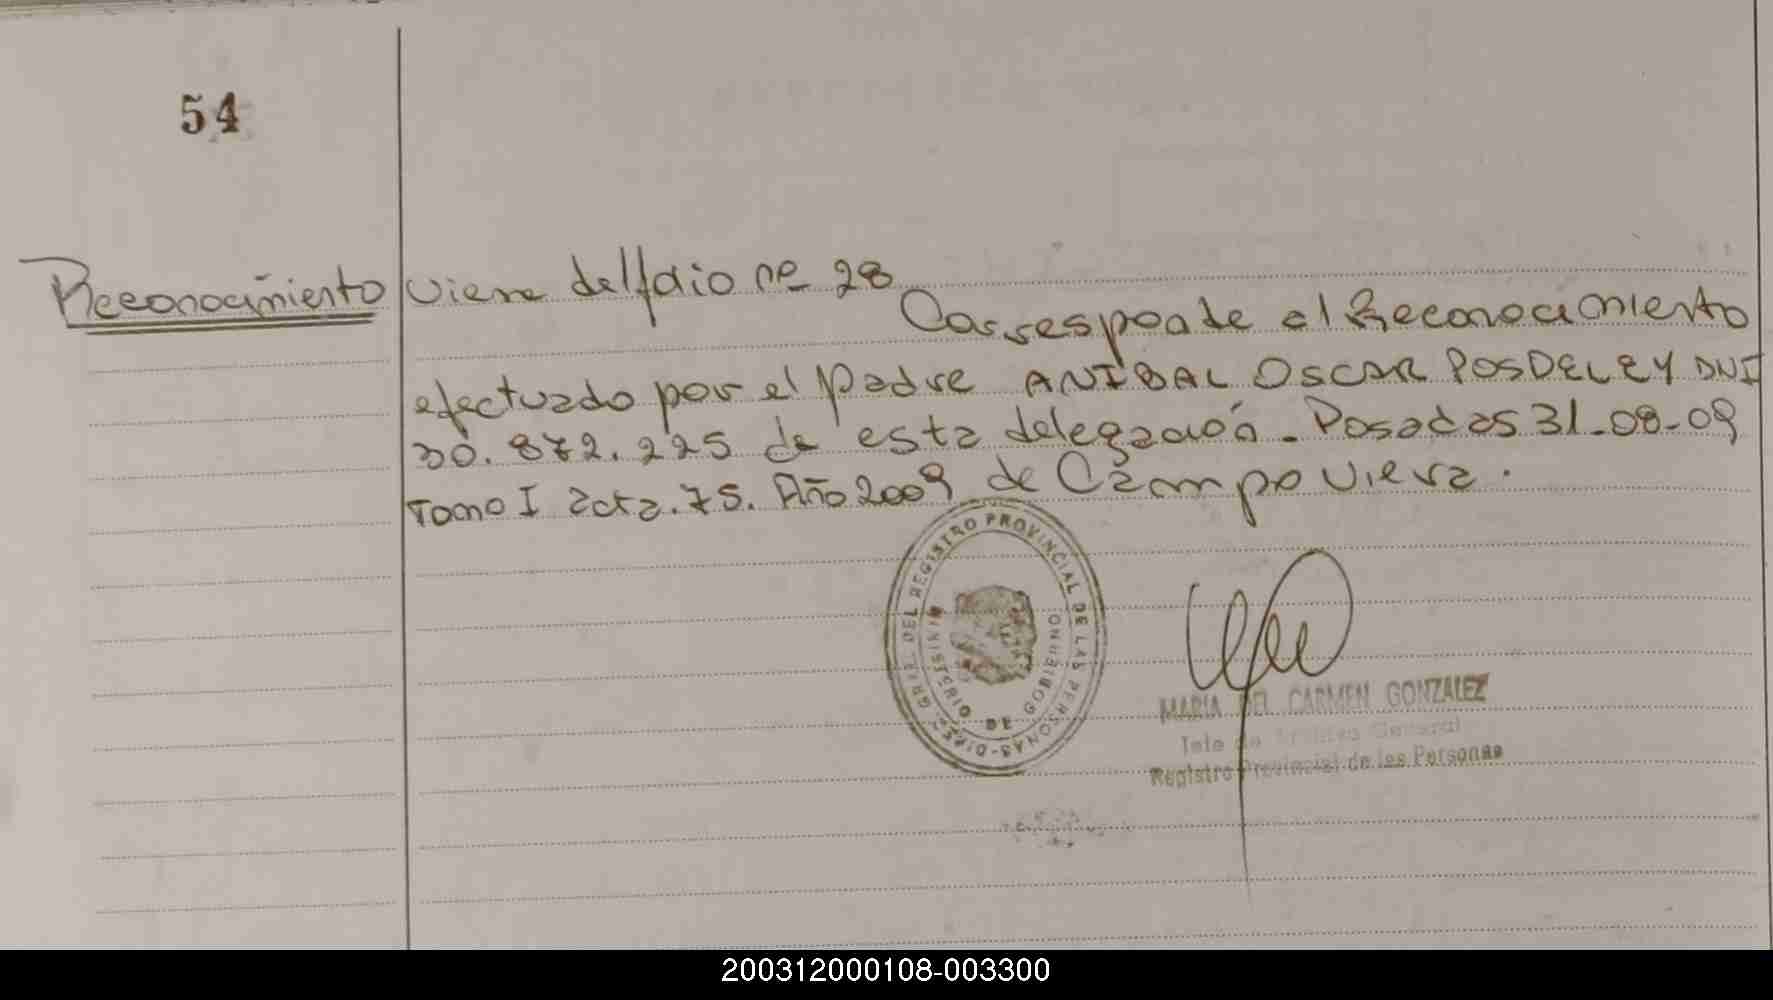 54
Reconocimiento
viene del folio nº 28
Corresponde al Reconocimiento
efectuado por el padre ANIBAL OSCAR POSDELEY DNI
30.872.225 de esta delegación - Posadas 31-08-09
Tomo I acta. 75. Año 2009 de Campo Viera.
DIREC. GRAL. DEL REGISTRO PROVINCIAL DE LAS PERSONAS
MINISTERIO DE GOBIERNO
MARIA DEL CARMEN GONZALEZ
General
Registro Provincial de las Personas
200312000108-003300